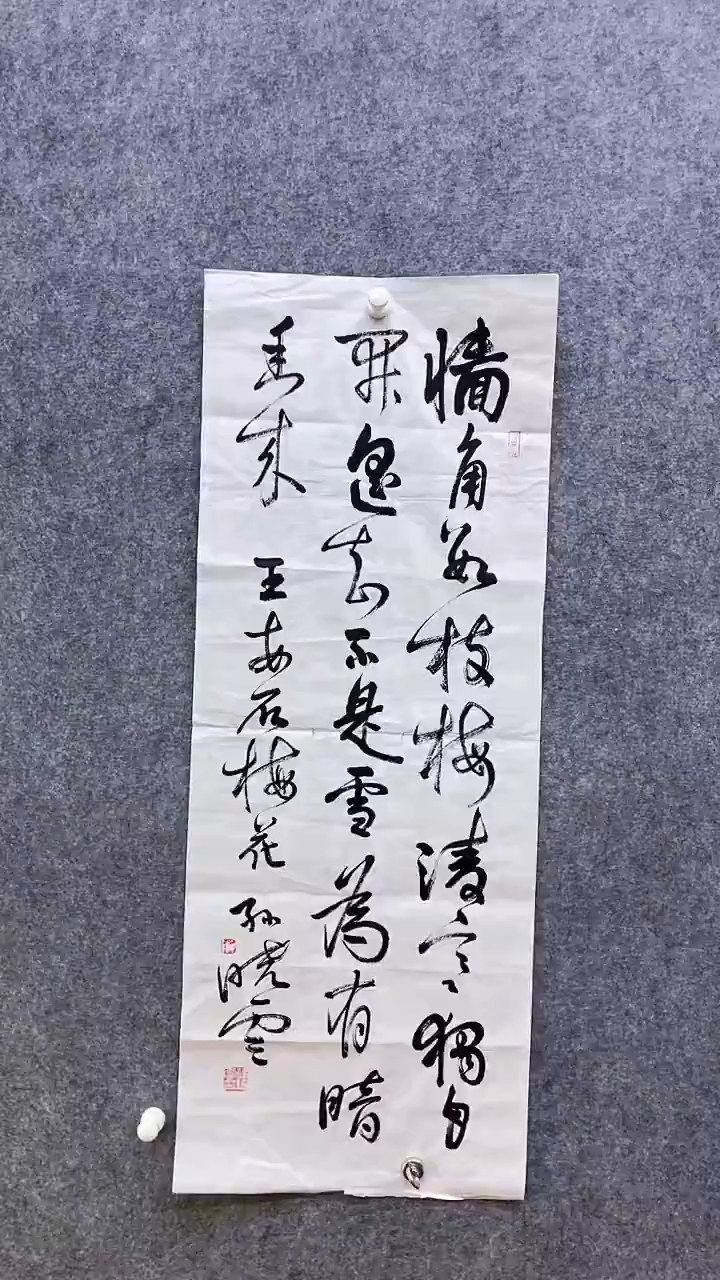 墙角数枝梅凌寒独自
開遥知不是雪为有暗
香来 王安石梅花 孙晓云